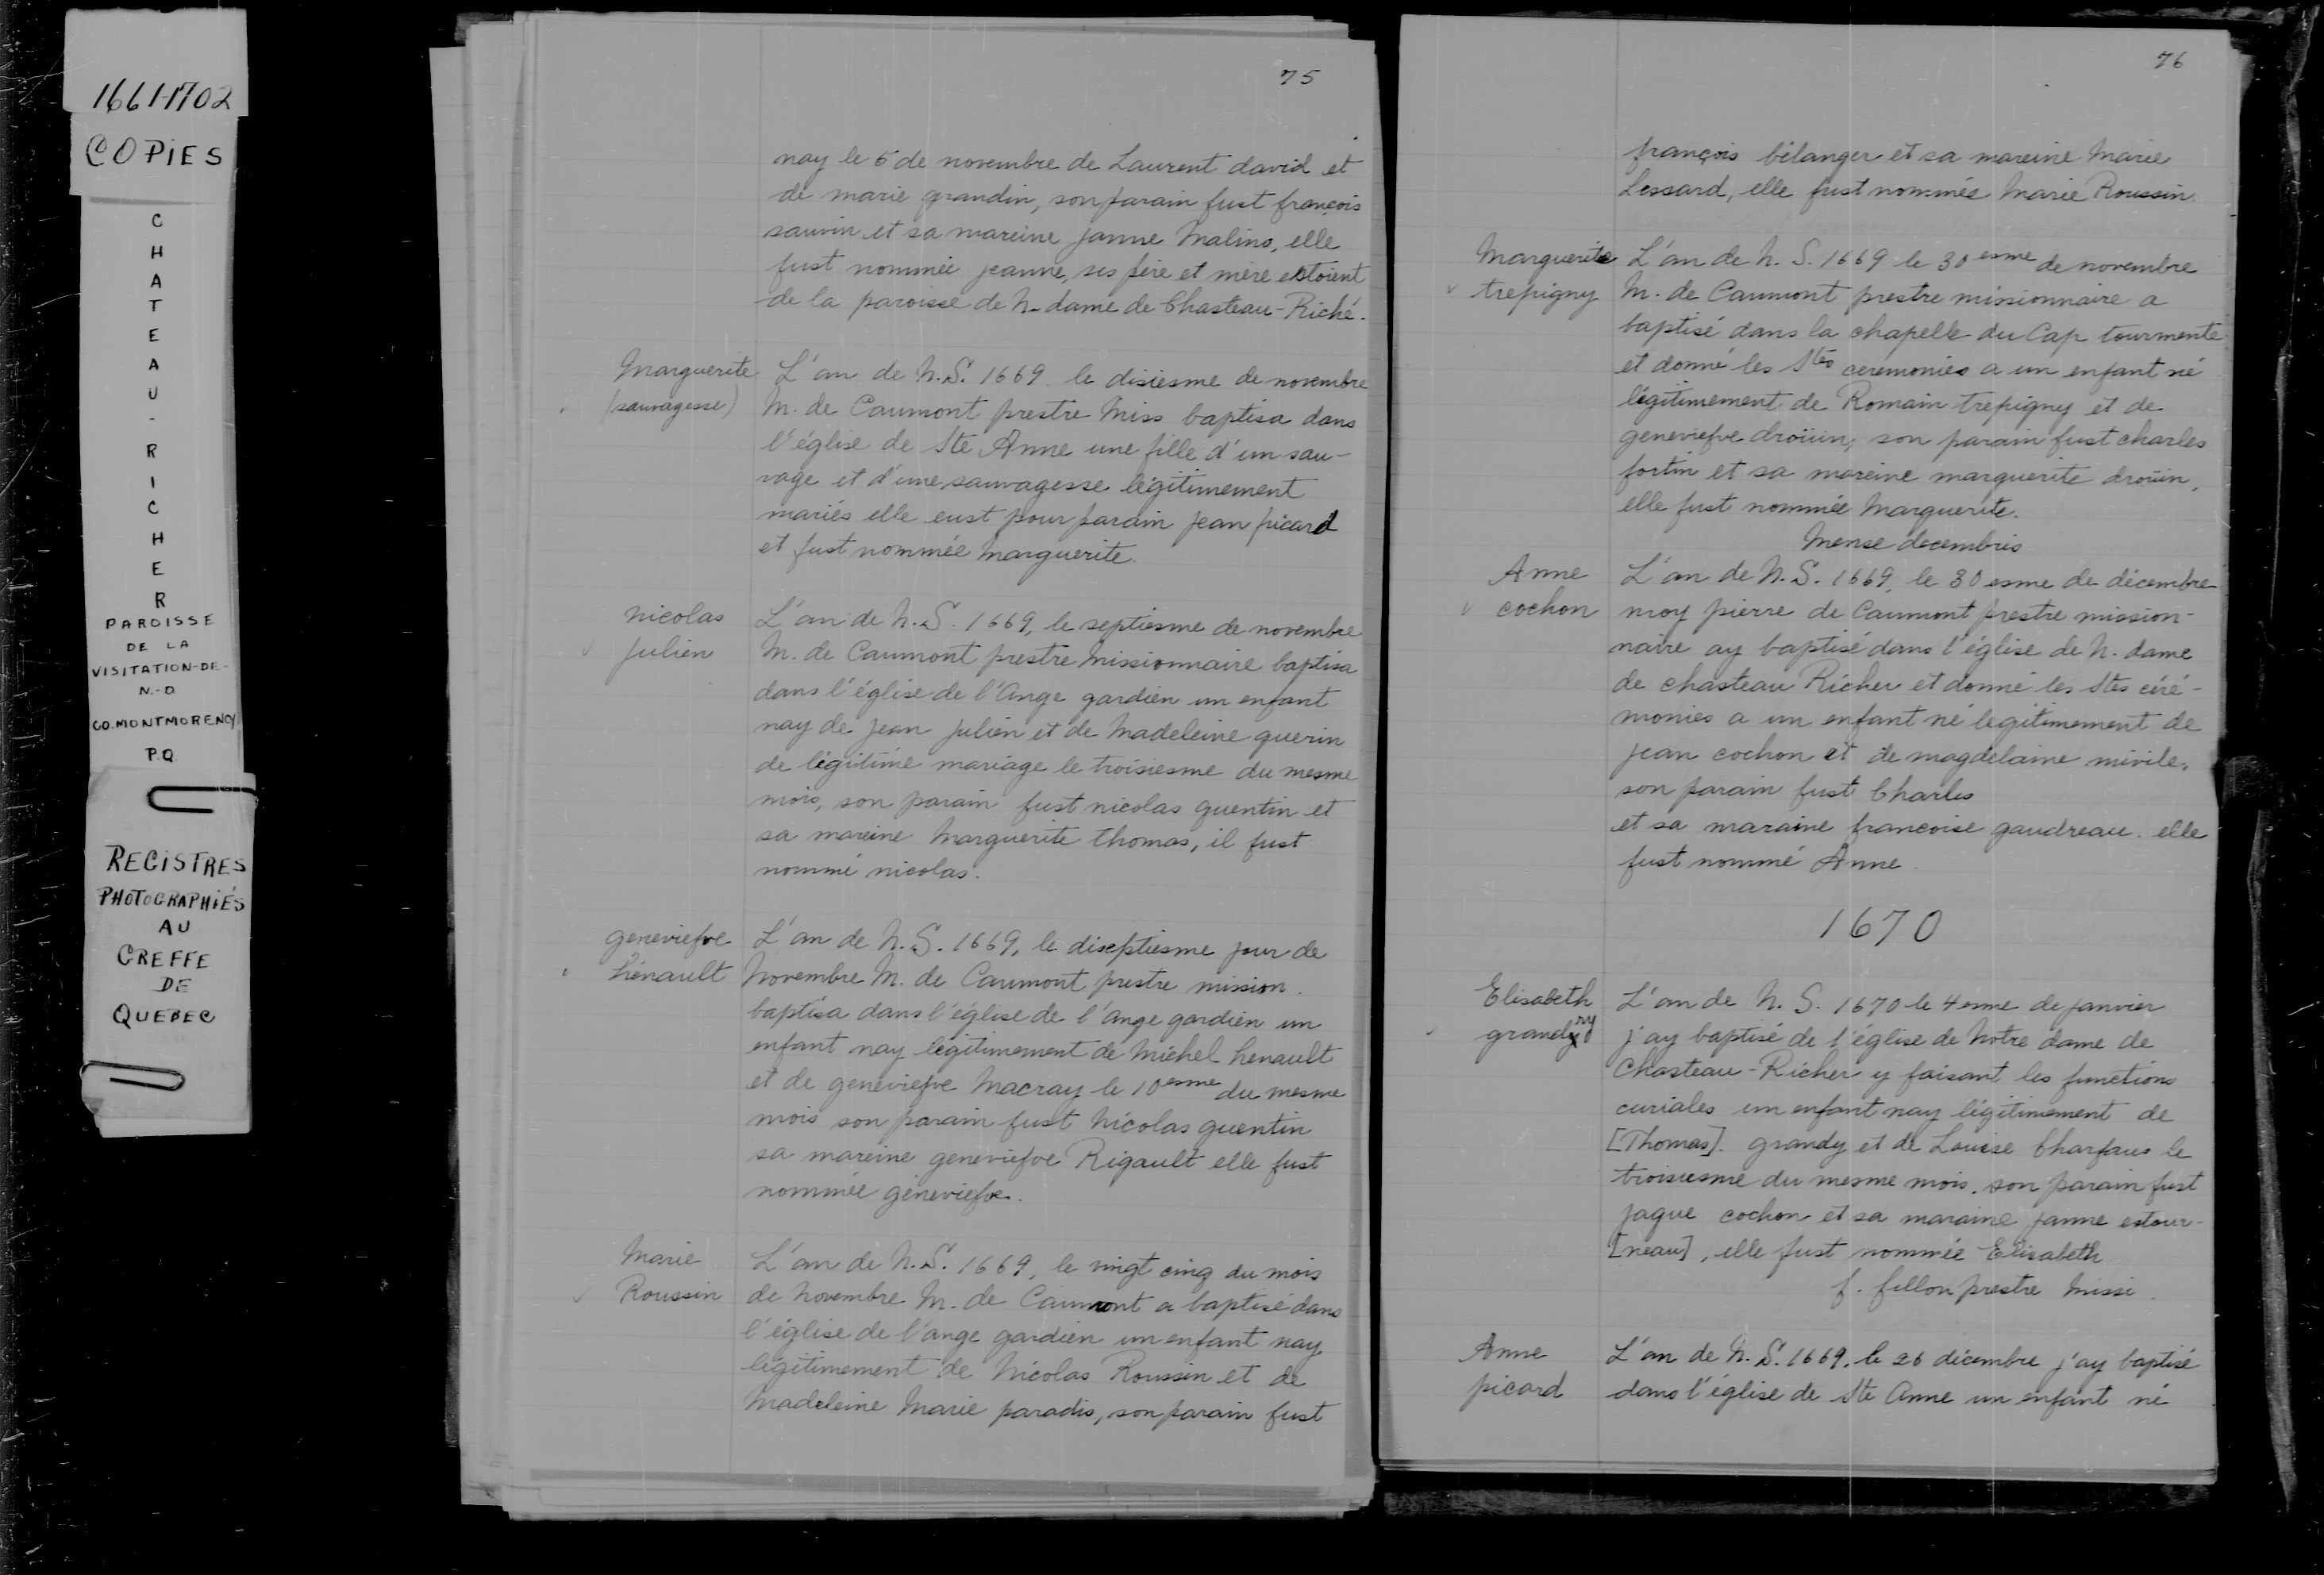 1661-1702
COPIES
CHATEAU-RICHER
PAROISSE
DE LA
VISITATION-DE-
N.-D.
CO. MONTMORENCY
P.Q.
REGISTRES
PHOTOGRAPHIÉS
AU
GREFFE
DE
QUEBEC
75
nay le 6 de novembre de Laurent david et
de marie grandin, son parain fust françois
sauvin et sa mareine janne Malino, elle
fust nommée jeanne, ses père et mère estoient
de la paroisse de N. dame de Chasteau-Riché.
Marguerite
(sauvagesse)
L'an de N.S. 1669 le disiesme de novembre
M. de Caumont prestre Miss baptisa dans
l'église de Ste Anne une fille d'un sau-
vage et d'une sauvagesse légitimement
mariés elle eust pour parain jean picard
et fust nommée Marguerite.
nicolas
Julien
L'an de N.S. 1669, le septiesme de novembre
M. de Caumont prestre Missionnaire baptisa
dans l'église de l'Ange gardien un enfant
nay de jean julien et de Madeleine guerin
de légitime mariage le troisiesme du mesme
mois, son parain fust nicolas quentin et
sa mareine Marguerite thomas, il fust
nommé nicolas.
geneviefve
hénault
L'an de N.S. 1669, le diseptiesme jour de
Novembre M. de Caumont prestre mission.
baptisa dans l'église de l'ange gardien un
enfant nay légitimement de Michel henault
et de geneviefve Macray le 10esme du mesme
mois son parain fust Nicolas quentin
sa mareine geneviefve Rigault elle fust
nommée géneviefve.
Marie
Roussin
L'an de N.S. 1669, le vingt cinq du mois
de Novembre M. de Caumont a baptisé dans
l'église de l'ange gardien un enfant nay
légitimement de Nicolas Roussin et de
Madeleine Marie paradis, son parain fust
76
françois bélanger et sa mareine Marie
Lessard, elle fust nommée Marie Roussin.
Marguerite
trepigny
L'an de N.S. 1669 le 30esme de novembre
M. de Caumont prestre missionnaire a
baptisé dans la chapelle du Cap tourmente
et donné les Stes ceremonies a un enfant né
légitimement de Romain trepigny et de
geneviefve droüin, son parain fust charles
fortin et sa mareine marguerite droüin,
elle fust nommée Marguerite.
Mense decembris
Anne
cochon
L'an de N.S. 1669, le 30esme de décembre
moy pierre de Caumont prestre mission-
naire ay baptisé dans l'église de N. dame
de chasteau Richer et donné les Stes céré-
monies a un enfant né legitimement de
jean cochon et de magdelaine mivile,
son parain fust Charles
et sa maraine francoise gaudreau. elle
fust nommé Anne
1670
Elisabeth
grandy ry
L'an de N.S. 1670 le 4esme de janvier
j'ay baptisé de l'église de Notre dame de
Chasteau-Richer y faisant les functions
curiales un enfant nay légitimement de
[Thomas]. grandy et de Louise Charfaus le
troisiesme du mesme mois. son parain fust
jaque cochon et sa maraine janne estour-
[neau], elle fust nommée Elisabeth
f. fillon prestre Missi.
Anne
picard
L'an de N.S. 1669, le 26 décembre j'ay baptisé
dans l'église de Ste Anne un enfant né